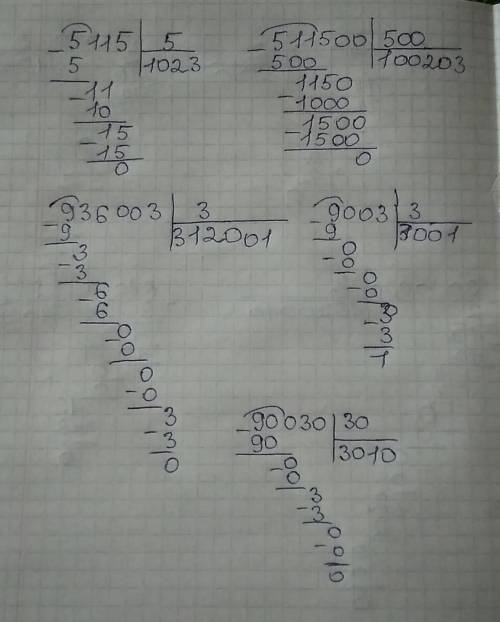 5115 5
5 1023
-11
10
-15
15
0
-511500 500
500 100203
1150
-1000
1500
-1500
0
-936003 3
9 312001
3
-3
6
-6
0
-0
0
0
-0
3
-3
0
-9003 3
9 3001
0
-0
0
-0
3
-3
1
-90030 30
90 3010
0
-0
3
-3
0
-0
0